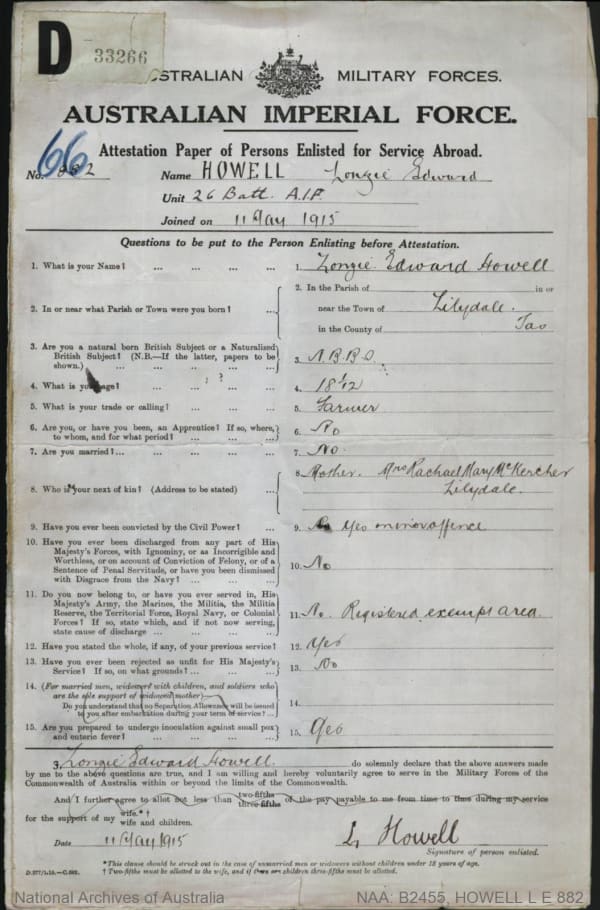 D 33266
AUSTRALIAN MILITARY FORCES.
AUSTRALIAN IMPERIAL FORCE.
66
Attestation Paper of Persons Enlisted for Service Abroad.
No. 882 Name HOWELL Lonzie Edward
Unit 26 Batt. A.I.F.
Joined on 11 May 1915
Questions to be put to the Person Enlisting before Attestation.
1. What is your Name? ... ... ... ... 1. Lonzie Edward Howell
2. In or near what Parish or Town were you born? ... 2. In the Parish of in or
near the Town of Lilydale.
in the County of Tas
3. Are you a natural born British Subject or a Naturalized
British Subject? (N.B.—If the latter, papers to be
shown.) ... ... ... ... ... 3. N.B.B.S.
4. What is your age? ... ... ... ... 4. 18 1/12
5. What is your trade or calling? ... ... ... 5. Farmer
6. Are you, or have you been, an Apprentice? If so, where,
to whom, and for what period? ... ... ... 6. No
7. Are you married? ... ... ... ... ... 7. No.
8. Who is your next of kin? (Address to be stated) ... 8. Mother. Mrs Rachael Mary McKercher
Lilydale.
9. Have you ever been convicted by the Civil Power? ... 9. No Yes minor offence
10. Have you ever been discharged from any part of His
Majesty's Forces, with Ignominy, or as Incorrigible and
Worthless, or on account of Conviction of Felony, or of a
Sentence of Penal Servitude, or have you been dismissed
with Disgrace from the Navy? ... ... ... 10. No
11. Do you now belong to, or have you ever served in, His
Majesty's Army, the Marines, the Militia, the Militia
Reserve, the Territorial Force, Royal Navy, or Colonial
Forces? If so, state which, and if not now serving,
state cause of discharge ... ... ... ... 11. No. Registered exempt area.
12. Have you stated the whole, if any, of your previous service? 12. Yes
13. Have you ever been rejected as unfit for His Majesty's
Service? If so, on what grounds? ... ... ... 13. No
14. (For married men, widowers with children, and soldiers who
are the sole support of widowed mother)—
Do you understand that no Separation Allowance will be issued
to you after embarkation during your term of service? ... 14.
15. Are you prepared to undergo inoculation against small pox
and enteric fever? ... ... ... ... 15. Yes
I, Lonzie Edward Howell do solemnly declare that the above answers made
by me to the above questions are true, and I am willing and hereby voluntarily agree to serve in the Military Forces of the
Commonwealth of Australia within or beyond the limits of the Commonwealth.
And I further agree to allot not less than two-fifths three-fifths of the pay payable to me from time to time during my service
for the support of my wife.*† wife and children.
Date 11 May 1915 L Howell
Signature of person enlisted.
*This clause should be struck out in the case of unmarried men or widowers without children under 18 years of age.
D.277/1.15.—C.692. † Two-fifths must be allotted to the wife, and if there are children three-fifths must be allotted.
National Archives of Australia NAA: B2455, HOWELL L E 882